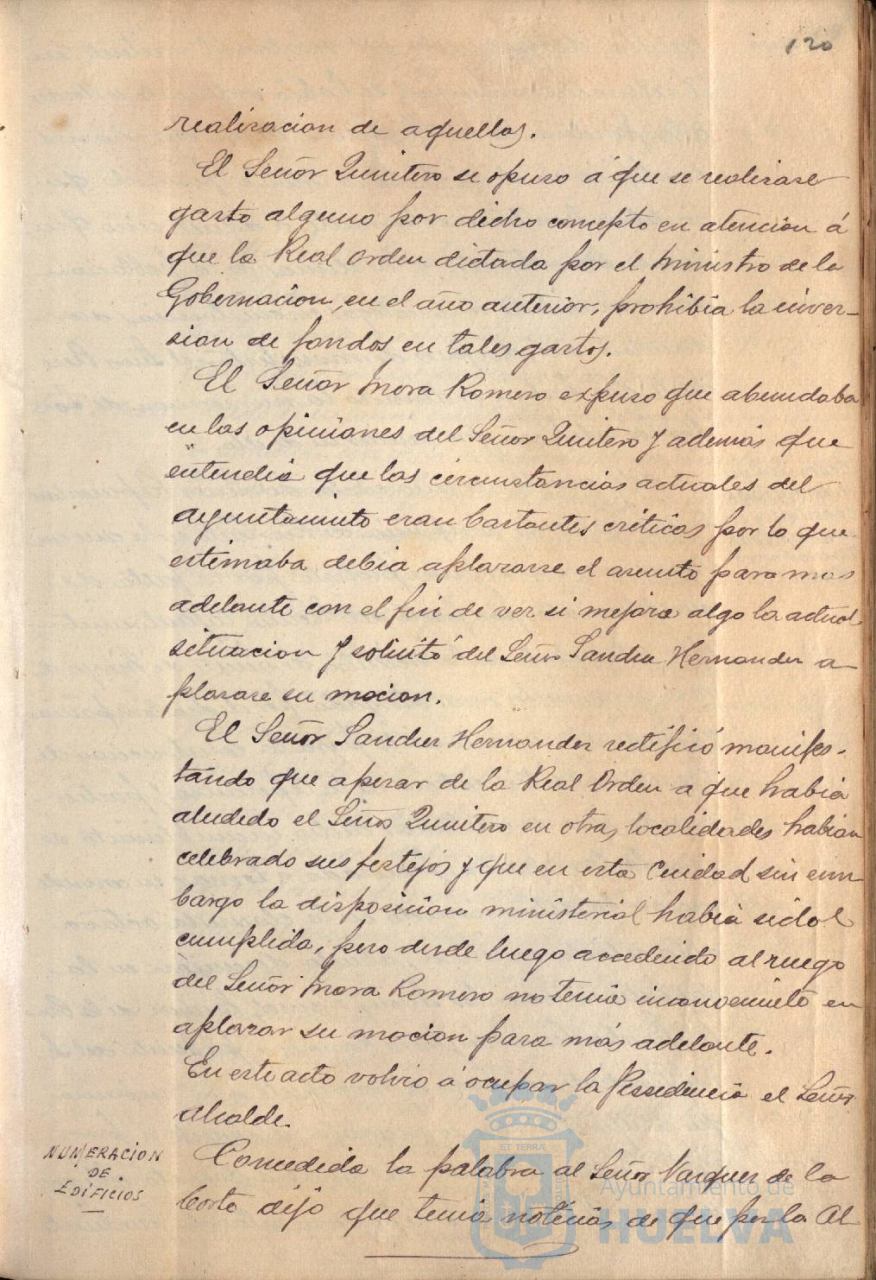 120
realizacion de aquellos.
El Señor Quintero se opuso á que se realizase
gasto alguno por dicho concepto en atencion á
que la Real Orden dictada por el Ministro de la
Gobernacion, en el año anterior, prohibia la inver-
sion de fondos en tales gastos.
El Señor Mora Romero expuso que abundaba
en las opiniones del Señor Quintero y además que
entendia que las circunstancias actuales del
Ayuntamiento eran bastantes criticas por lo que
estimaba debia aplazarse el asunto para mas
adelante con el fin de ver si mejora algo la actual
situacion y solicitó del Señor Sanchez Hernandez a-
plazase su mocion.
El Señor Sanchez Hernandez rectificó manifes-
tando que apesar de la Real Orden a que habia
aludido el Señor Quintero en otras localidades habian
celebrado sus festejos y que en esta Ciudad sin em
bargo la disposicion ministerial habia sido
cumplida, pero desde luego accediendo al ruego
del Señor Mora Romero no tenia inconveniente en
aplazar su mocion para más adelante.
En este acto volvió á ocupar la Presidencia el Señor
Alcalde.
NUMERACION
DE
EDIFICIOS
Concedida la palabra al Señor Vazquez de la
Corte dijo que tenia noticias de que por la Al
Ayuntamiento de
HUELVA